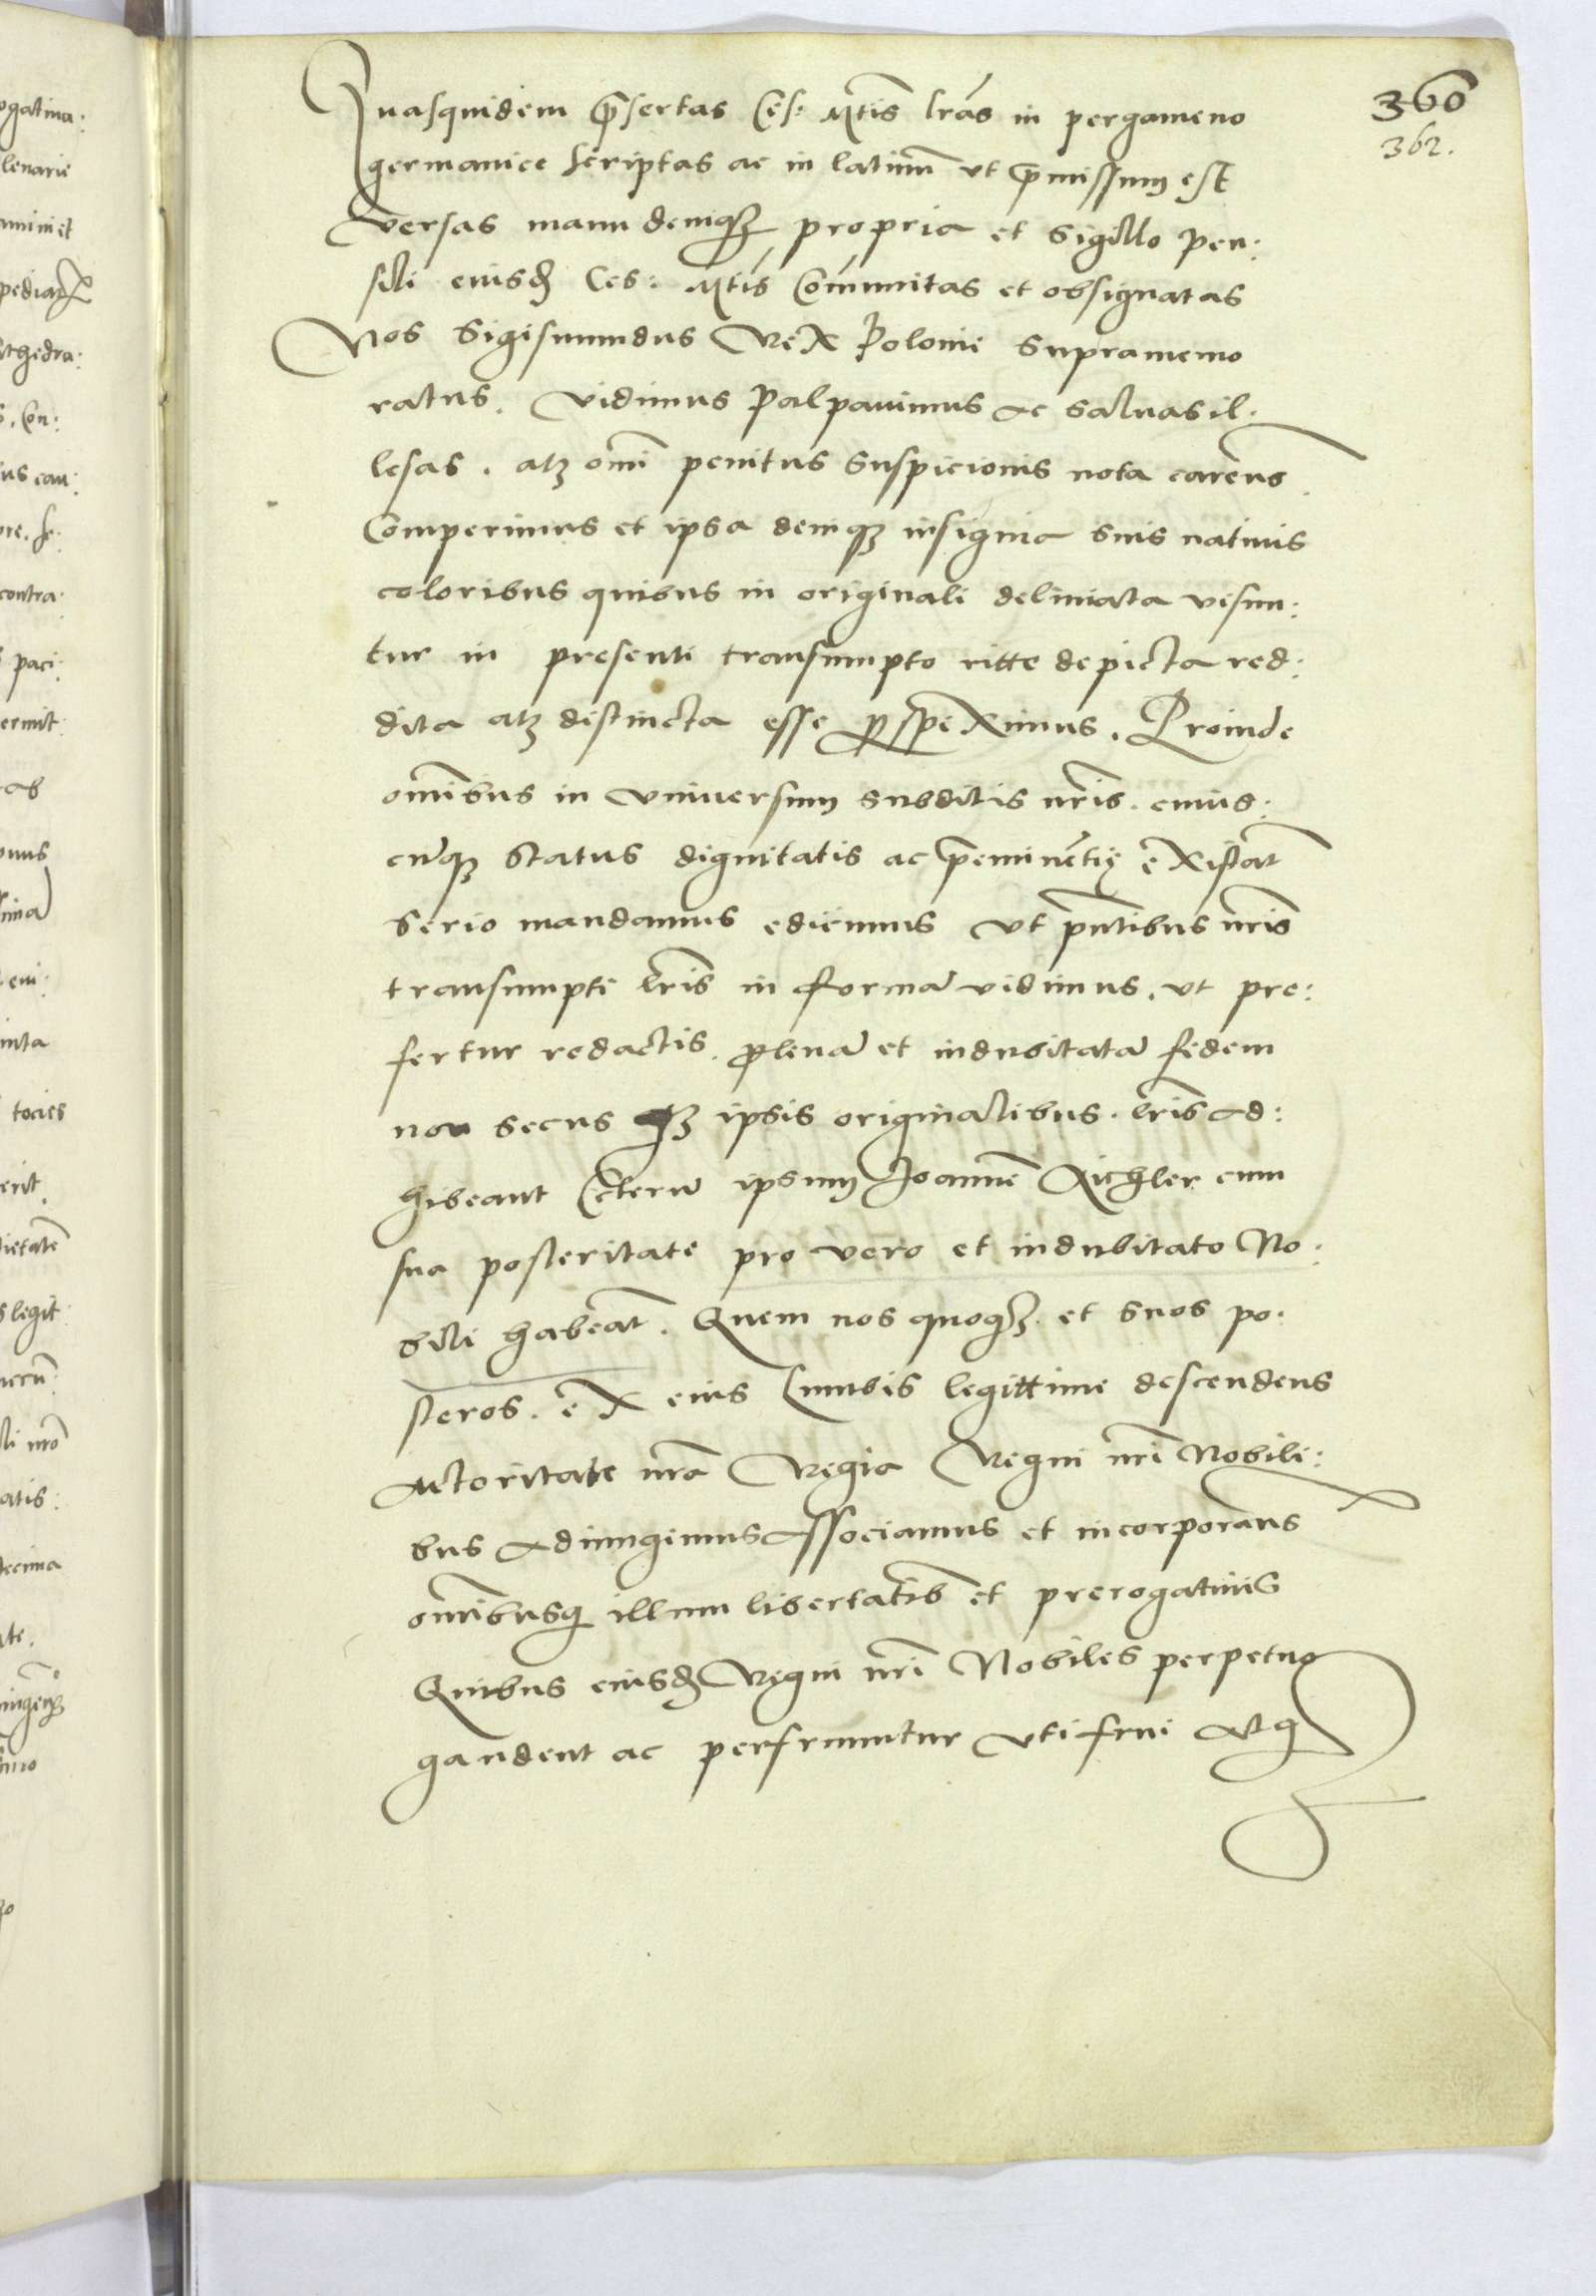 360
362.
Quasquidem p̃sertas Ces: Mt̃is lr̃as in pergameno
germanice scriptas ac in latinũ ut p̃missum est
versas manu deniqꝫ propria et Sigillo pen:
sili eiusd̃ Ces: Mt̃is Com̃unitas et obsignatas
Nos Sigismundus Rex Polonie supramemo
ratus. Vidimus Palpauimus ac saluas il:
lesas. atqꝫ om̃i penitus suspicionis nota caren̄s
Comperimus et ipsa deniqꝫ insignia suis natiuis
coloribus quibus in originali deliniata visun:
tur in presenti transumpto ritte depicta red:
dita atqꝫ distincta esse ꝑspeximus. Proinde
om̃ibus in vniuersum subditis nr̃is. cuius:
cũqꝫ status dignitatis ac p̃emine͂tię existant
serio mandamus edicimus vt pñtibus nr̃is
transumpti lr̃is in formã vidimus. ut pre:
fertur redactis. plenã et indubitatã fidem
non secus qꝫ ipsis originalibus. lr̃is ad:
hibeant Ceterũ ipsum Joannẽ Aichler cum
sua posteritate pro vero et indubitato No:
bili habeãt. Quem nos quoqꝫ et suos po:
steros. ex eius Lumbis legittime descenden̄s
Auctoritate nr̃a Regia Regni nr̃i Nobili:
bus adiungimus associamus et incorporam̃us
om̃ibusqꝫ illum libertatib̃ et prerogatiuis
Quibus eiusd̃ Regni nr̃i Nobiles perpetuo
gaudent ac perfruuntur uti frui atqꝫ
ogatiua:
lenarie
thedra:
s. Con:
us cau:
contra:
s paci:
ermit
tocies
erit.
ietatẽ
s legit
li nr̃o
atis:
decima